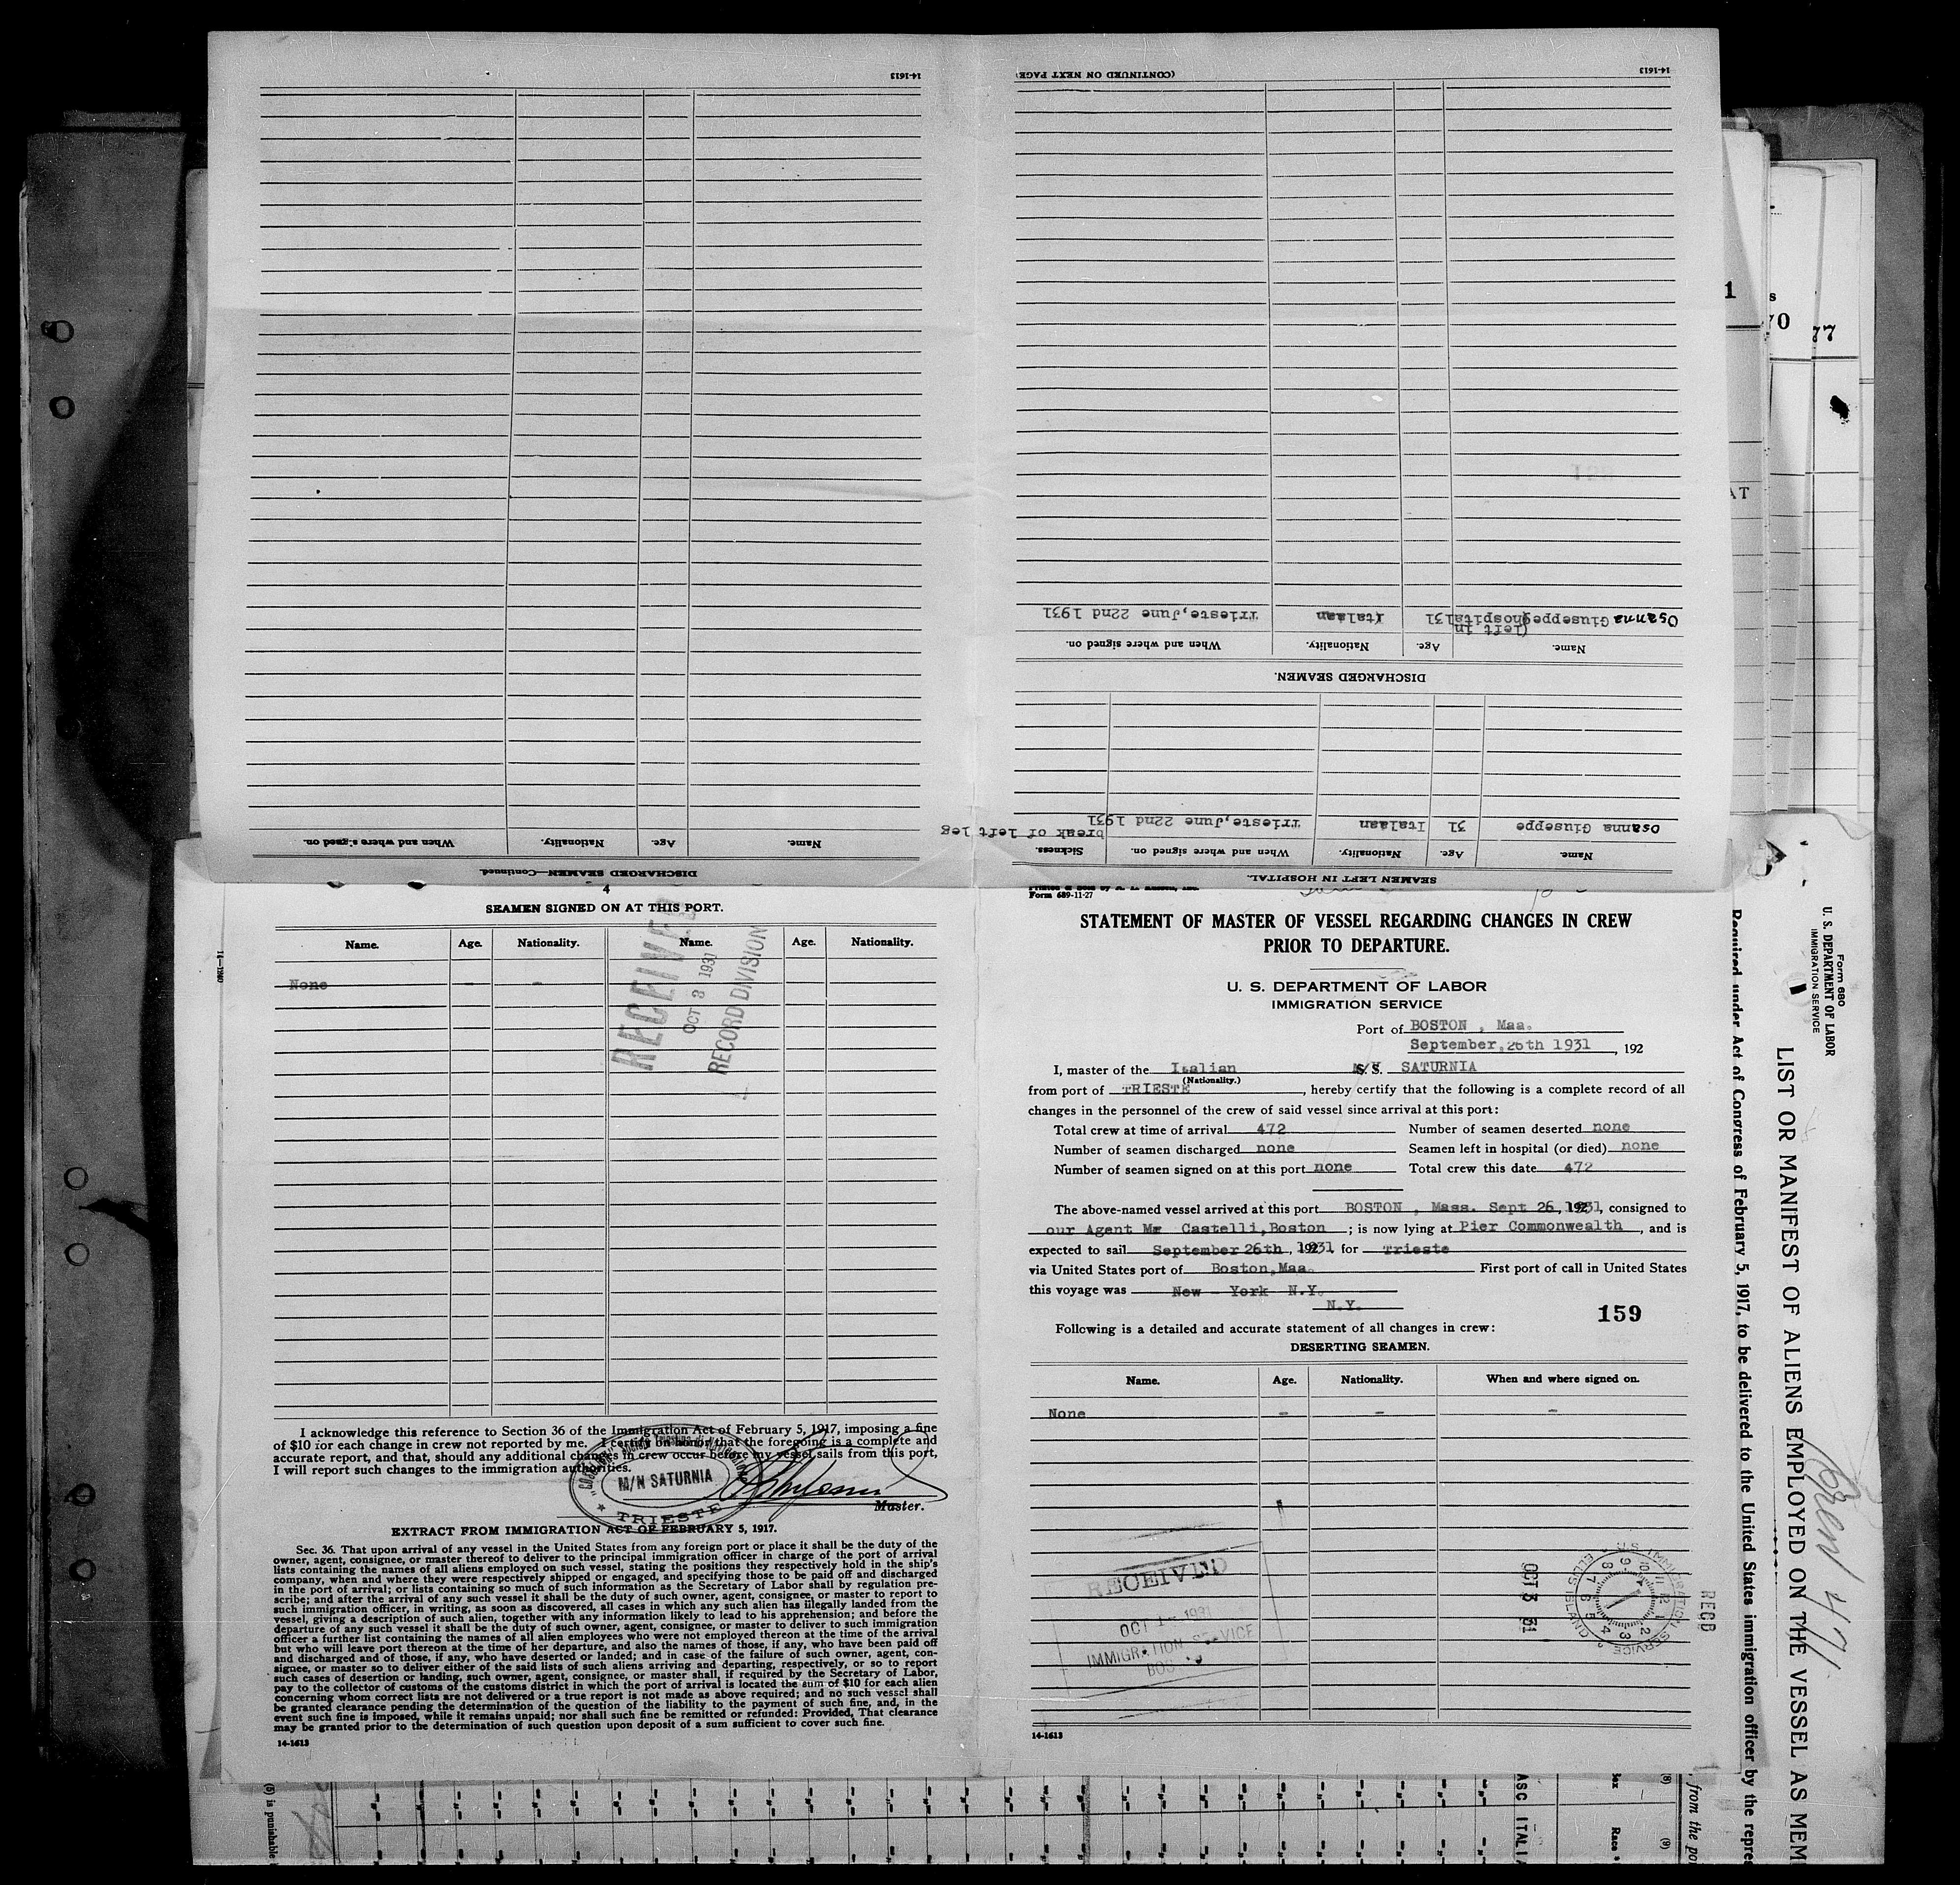 14-1613
(CONTINUED ON NEXT PAGE)
14-1613
DISCHARGED SEAMEN—Continued.
Name.
Age.
Nationality.
When and where signed on.
SEAMEN LEFT IN HOSPITAL.
Name. Age. Nationality. When and where signed on. Sickness.
Osanna Giuseppe 31 Italaan Trieste,June 22nd 1931 break of left leg
DISCHARGED SEAMEN.
Name. Age. Nationality. When and where signed on.
(left in
Osanna Giuseppe hospital 31 Italaan Trieste,June 22nd 1931
4
SEAMEN SIGNED ON AT THIS PORT.
Name. Age. Nationality. Name. Age. Nationality.
None - -
RECEIVED
OCT 3 1931
RECORD DIVISION
I acknowledge this reference to Section 36 of the Immigration Act of February 5, 1917, imposing a fine
of $10 for each change in crew not reported by me. I certify on honor that the foregoing is a complete and
accurate report, and that, should any additional changes in crew occur before my vessel sails from this port,
I will report such changes to the immigration authorities.
M/N SATURNIA
TRIESTE
Master.
EXTRACT FROM IMMIGRATION ACT OF FEBRUARY 5, 1917.
Sec. 36. That upon arrival of any vessel in the United States from any foreign port or place it shall be the duty of the
owner, agent, consignee, or master thereof to deliver to the principal immigration officer in charge of the port of arrival
lists containing the names of all aliens employed on such vessel, stating the positions they respectively hold in the ship's
company, when and where they were respectively shipped or engaged, and specifying those to be paid off and discharged
in the port of arrival; or lists containing so much of such information as the Secretary of Labor shall by regulation pre-
scribe; and after the arrival of any such vessel it shall be the duty of such owner, agent, consignee, or master to report to
such immigration officer, in writing, as soon as discovered, all cases in which any such alien has illegally landed from the
vessel, giving a description of such alien, together with any information likely to lead to his apprehension; and before the
departure of any such vessel it shall be the duty of such owner, agent, consignee, or master to deliver to such immigration
officer a further list containing the names of all alien employees who were not employed thereon at the time of the arrival
but who will leave port thereon at the time of her departure, and also the names of those, if any, who have been paid off
and discharged and of those, if any, who have deserted or landed; and in case of the failure of such owner, agent, con-
signee, or master so to deliver either of the said lists of such aliens arriving and departing, respectively, or so to report
such cases of desertion or landing, such owner, agent, consignee, or master shall, if required by the Secretary of Labor,
pay to the collector of customs of the customs district in which the port of arrival is located the sum of $10 for each alien
concerning whom correct lists are not delivered or a true report is not made as above required; and no such vessel shall
be granted clearance pending the determination of the question of the liability to the payment of such fine, and, in the
event such fine is imposed, while it remains unpaid; nor shall such fine be remitted or refunded: Provided, That clearance
may be granted prior to the determination of such question upon deposit of a sum sufficient to cover such fine.
14-1613
Form 689-11-27
STATEMENT OF MASTER OF VESSEL REGARDING CHANGES IN CREW
PRIOR TO DEPARTURE.
U. S. DEPARTMENT OF LABOR
IMMIGRATION SERVICE
Port of BOSTON , Maa.
September,26th 1931, 192
I, master of the Italian S. S. SATURNIA
(Nationality.)
from port of TRIESTE, hereby certify that the following is a complete record of all
changes in the personnel of the crew of said vessel since arrival at this port:
Total crew at time of arrival 472 Number of seamen deserted none
Number of seamen discharged none Seamen left in hospital (or died) none
Number of seamen signed on at this port none Total crew this date 472
The above-named vessel arrived at this port BOSTON , Mass. Sept 26,1931, consigned to
our Agent Mr Castelli,Boston ; is now lying at Pier Commonwealth, and is
expected to sail September 26th , 1931, for Trieste
via United States port of Boston,Maa. First port of call in United States
this voyage was New - York N.Y.
N.Y.
159
Following is a detailed and accurate statement of all changes in crew:
DESERTING SEAMEN.
Name. Age. Nationality. When and where signed on.
None - - -
RECEIVED
OCT 1 - 1931
IMMIGRATION SERVICE
OCT 3 31
RECD
IMMIGRATION SERVICE
ELLIS ISLAND
14-1613
Form 680
U. S. DEPARTMENT OF LABOR
IMMIGRATION SERVICE
LIST OR MANIFEST OF ALIENS EMPLOYED ON THE VESSEL AS MEM
Required under Act of Congress of February 5, 1917, to be delivered to the United States immigration officer by the repres
Crew 471
from the po
(5) is punishable
ASC ITALI
Sex
Race
(8)
(9)
1
70
77
AT